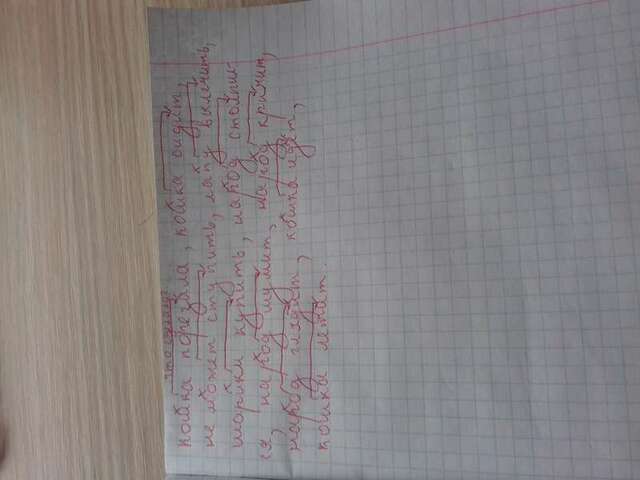 что сделала?
кошка порезала, кошка сидит,
не может ступить, лапу вылечить,
шарики купить, народ столпил-
ся, народ шумит, народ кричит,
народ глядит, кошка идёт,
кошка летат.